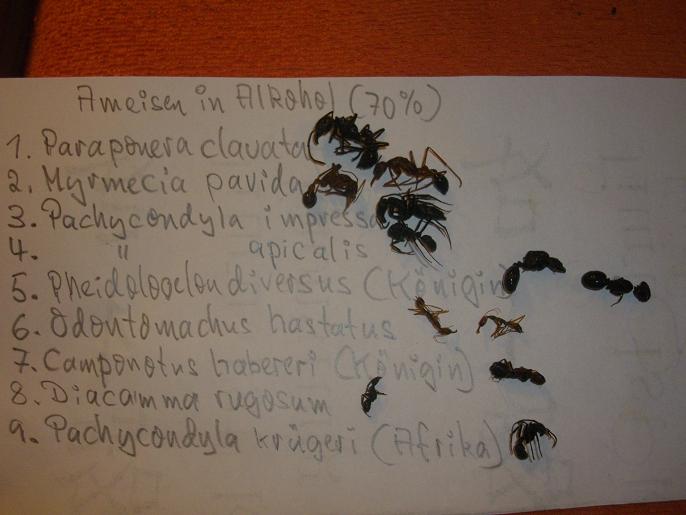 Ameisen in Alkohol (70%)
1. Paraponera clavata
2. Myrmecia pavida
3. Pachycondyla impressa
4. " apicalis
5. Pheidologeton diversus (Königin)
6. Odontomachus hastatus
7. Camponotus habereri (Königin)
8. Diacamma rugosum
9. Pachycondyla krügeri (Afrika)